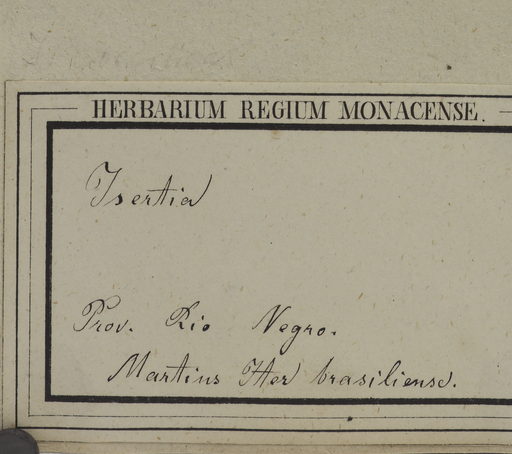 HERBARIUM REGIUM MONACENSE.
Isertia
Prov. Rio Negro.
Martius Iter brasiliense.